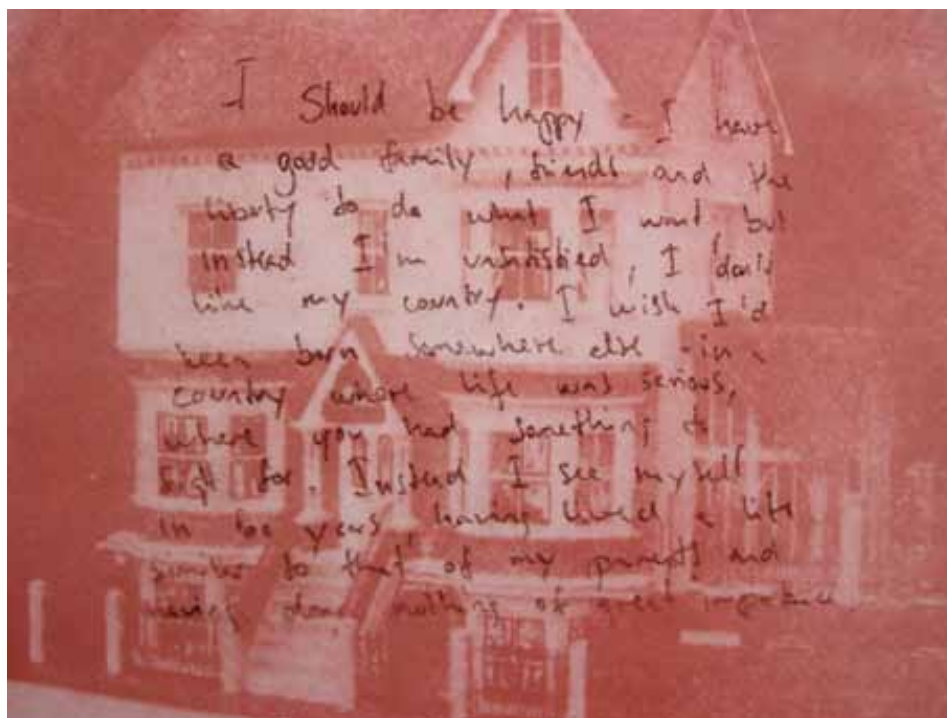 I should be happy - I have
a good family, friends and the
liberty to do what I want, but
instead I'm unsatisfied, I don't
like my country. I wish I'd
been born somewhere else - in a
country where life was serious,
where you had something to
fight for. Instead I see myself
in 60 years, having lived a life
similar to that of my parents and
having done nothing of great importance